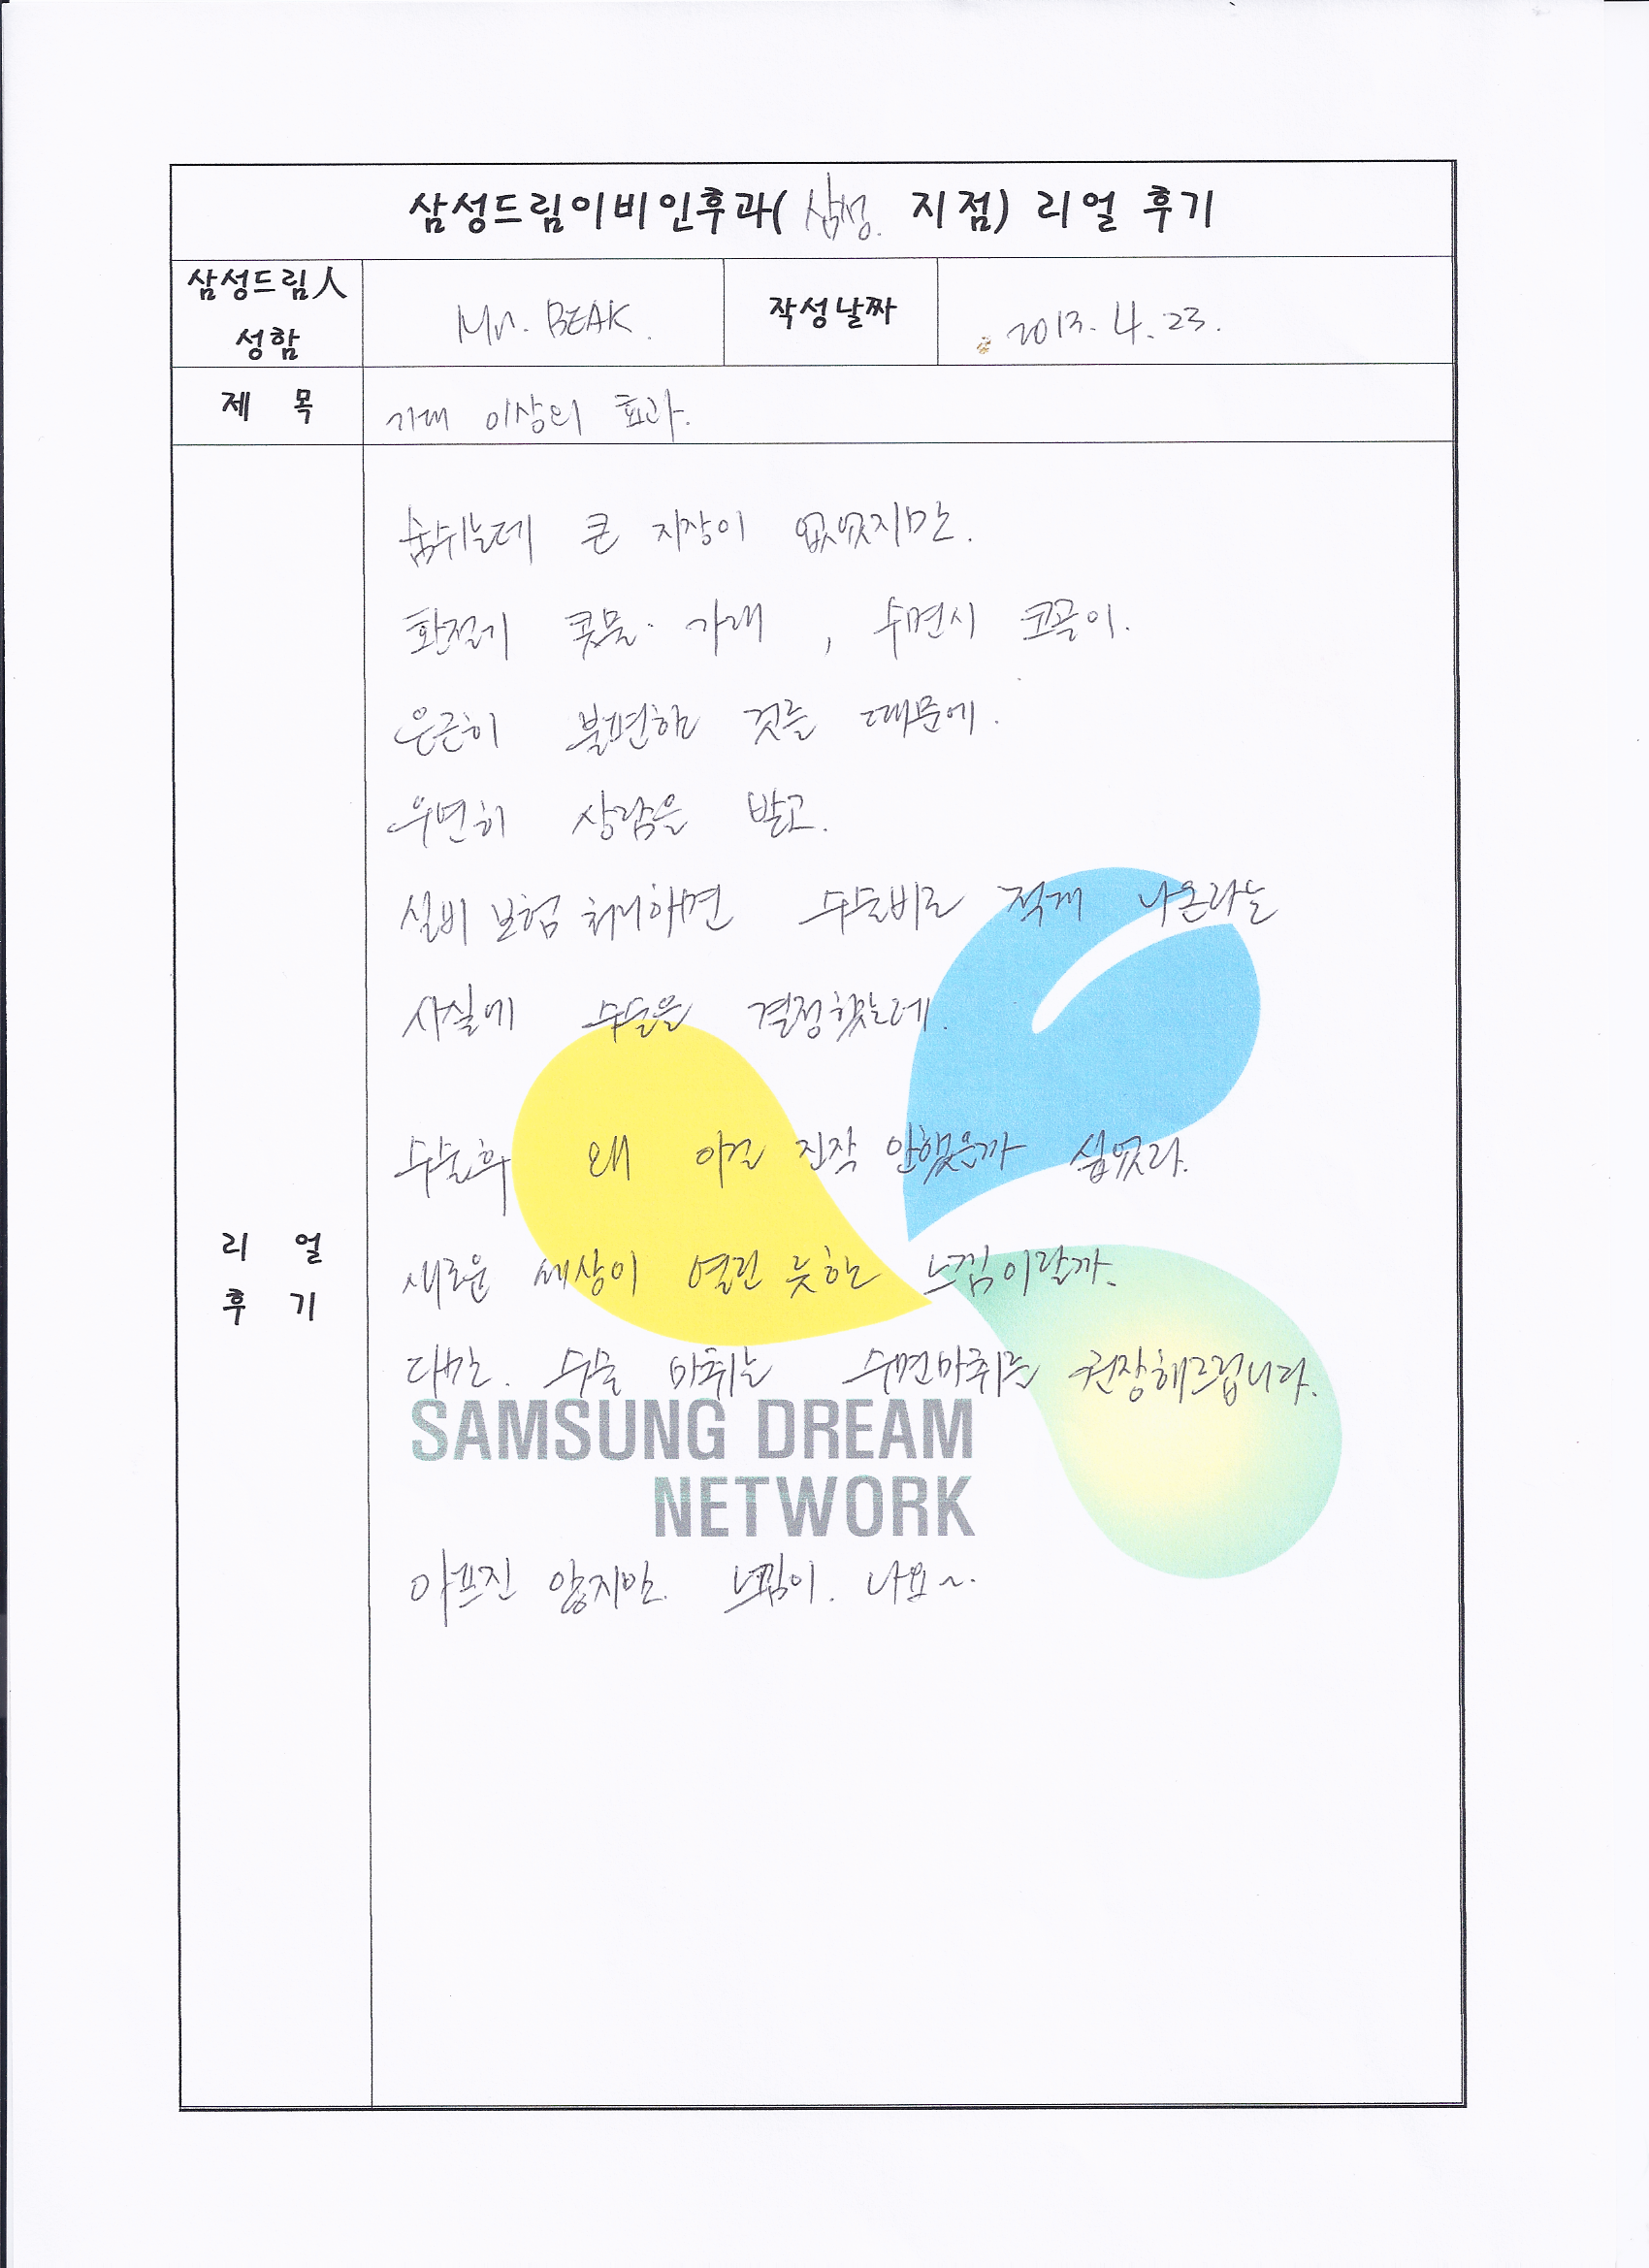 삼성드림이비인후과( 삼성. 지점) 리얼 후기
삼성드림人
성함
Mr. BEAK.
작성날짜
2013. 4. 23.
제 목
기대 이상의 효과.
숨쉬는데 큰 지장이 없었지만.
환절기 콧물. 가래 , 수면시 코골이.
은근히 불편한 것들 때문에.
우연히 상담을 받고.
실비 보험 처리하면 수술비로 적게 나온다는
사실에 수술을 결정했는데.
수술후 왜 이걸 진작 안했을까 싶었다.
새로운 세상이 열린 듯한 느낌이랄까.
다만. 수술 마취는 수면마취를 권장해드립니다.
SAMSUNG DREAM
NETWORK
아프진 않지만. 느낌이. 나요~.
리 얼
후 기